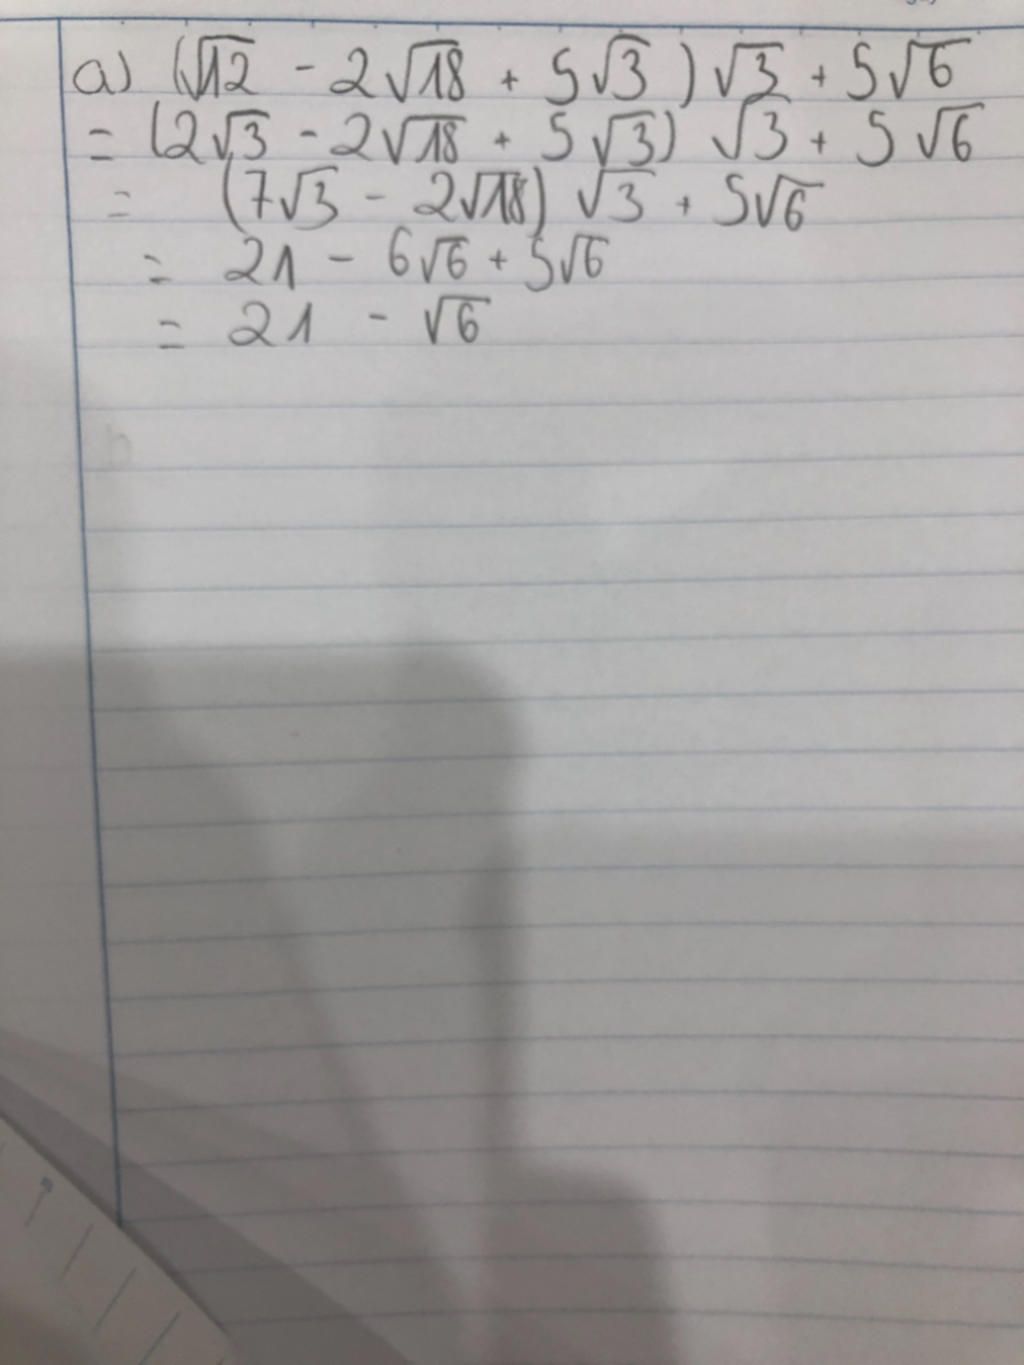 a) (√12 - 2√18 + 5√3) √3 + 5√6
= (2√3 - 2√18 + 5√3) √3 + 5√6
= (7√3 - 2√18) √3 + 5√6
= 21 - 6√6 + 5√6
= 21 - √6